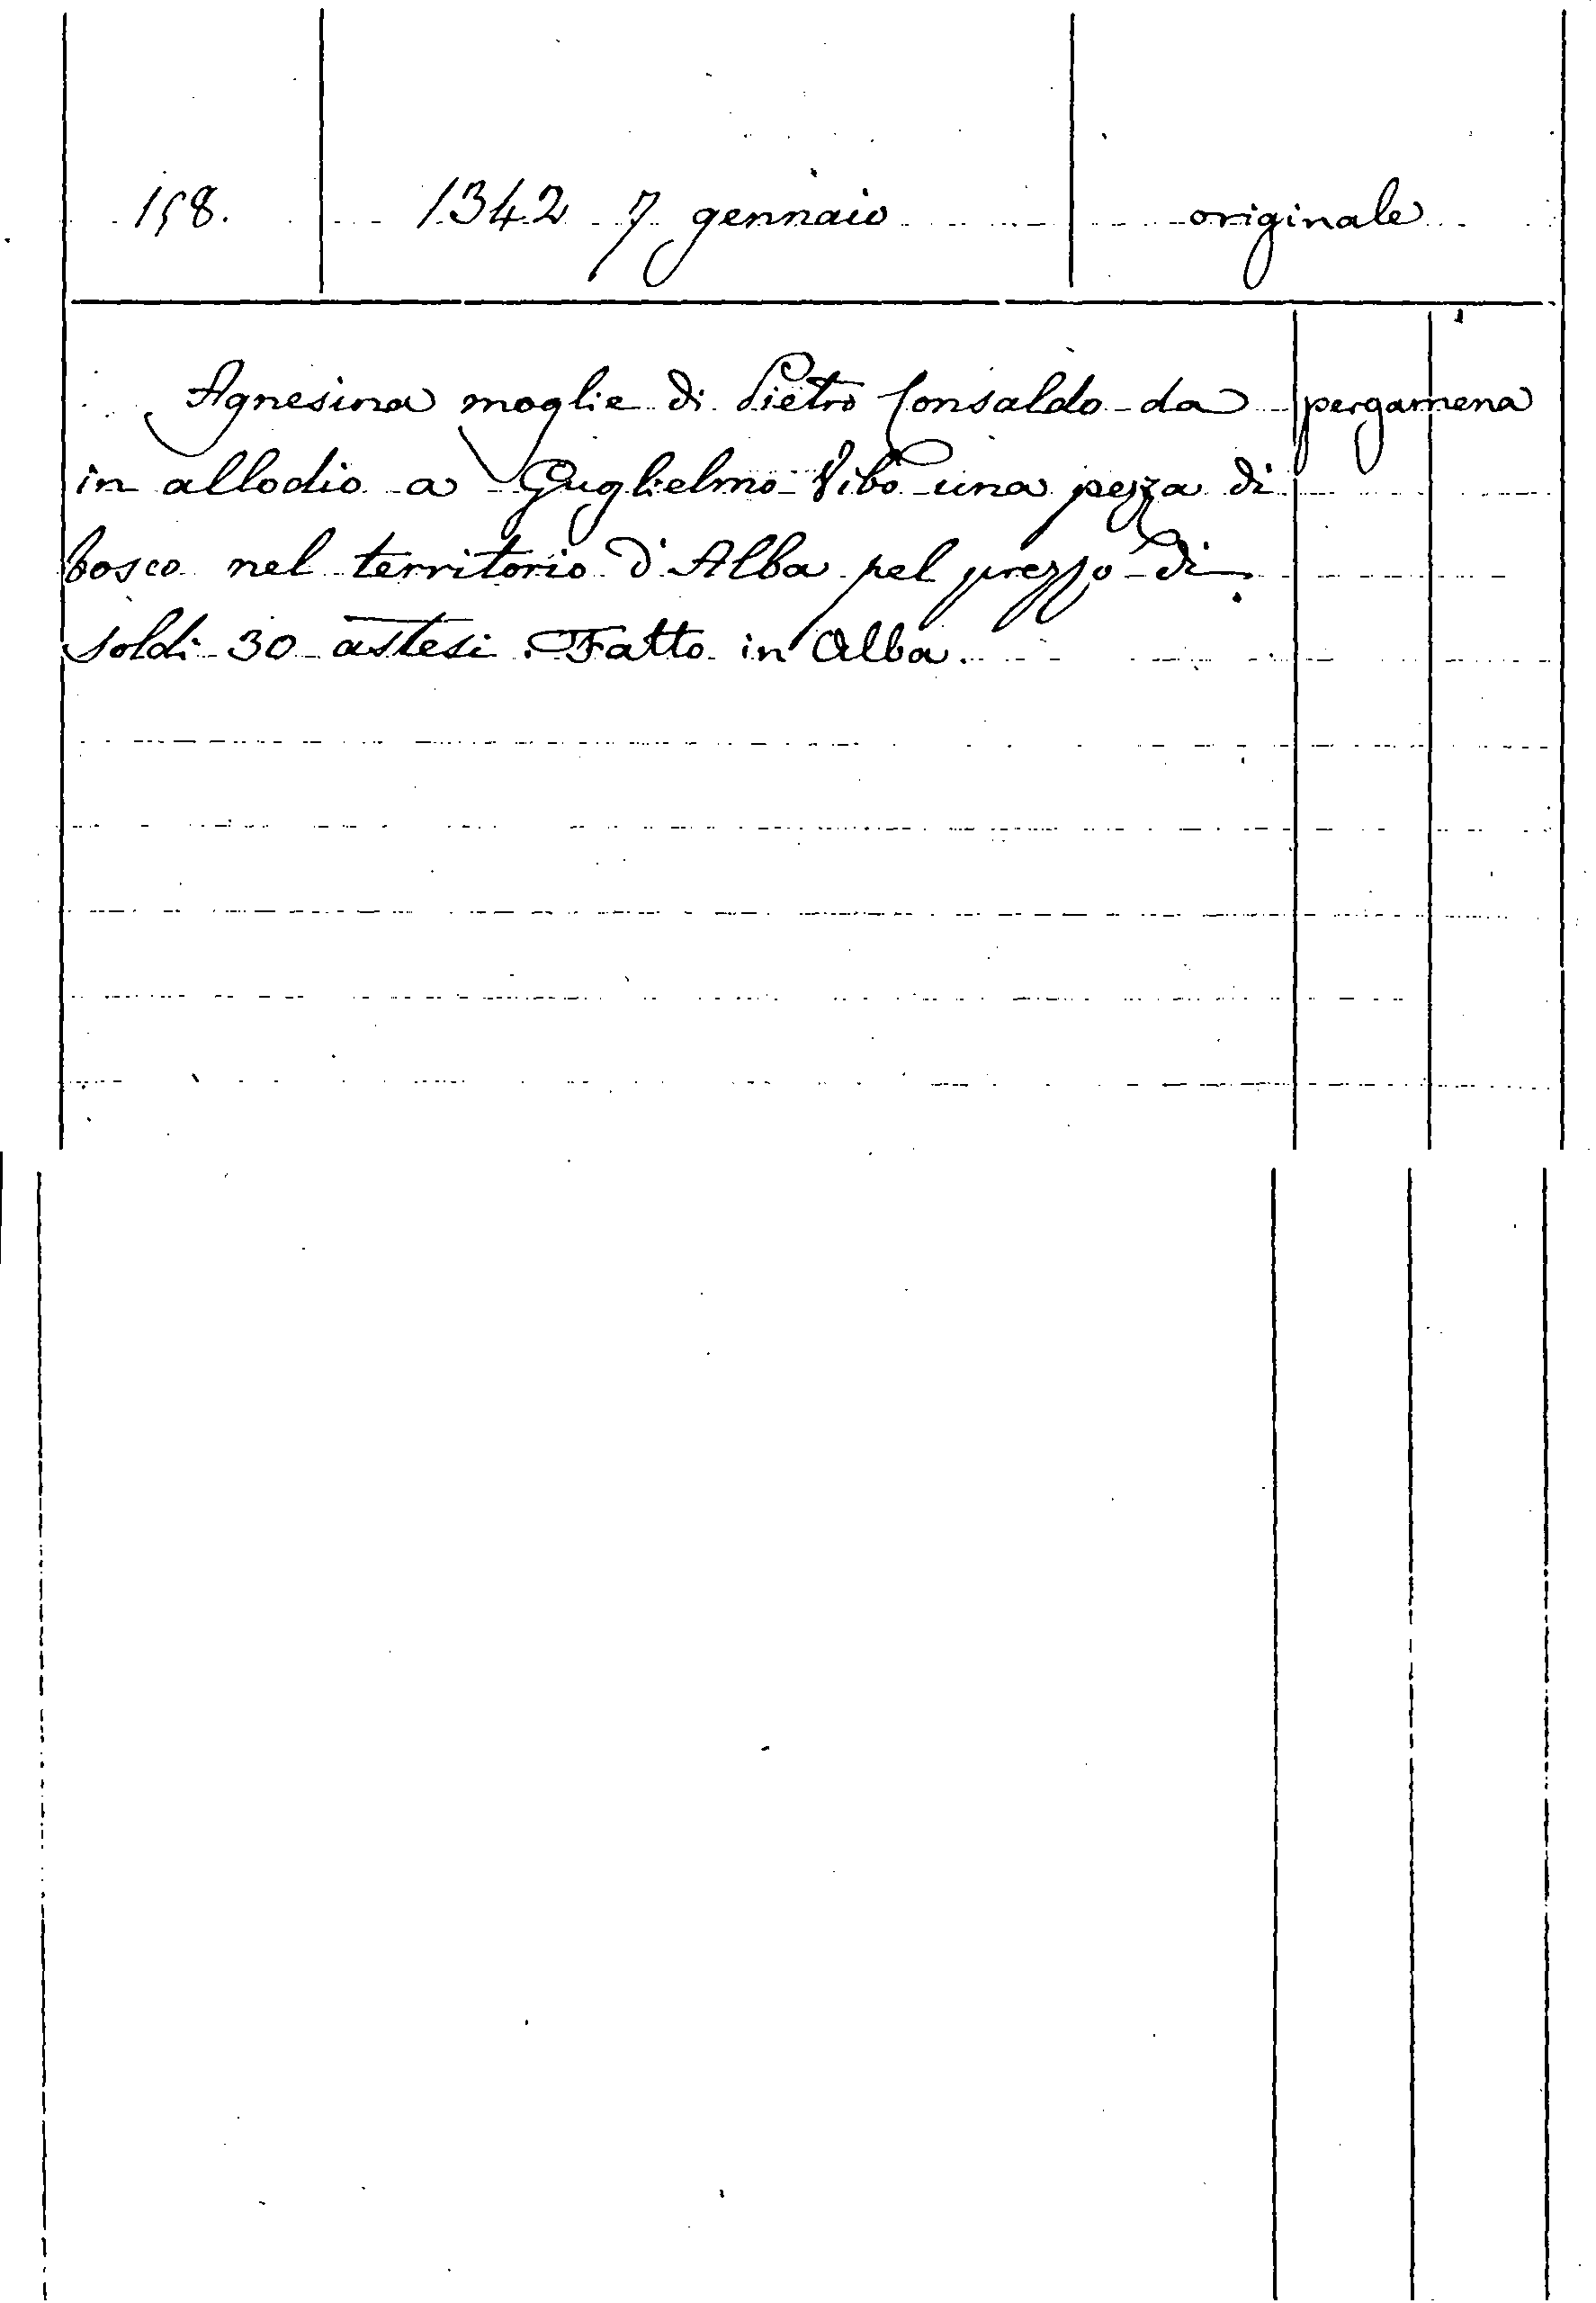 158. 1342 7 gennaio originale
Agnesina moglie di Pietro Consaldo da pergamena
in allodio a Guglielmo Vibò una pezza di
bosco nel territorio d'Alba pel prezzo di
soldi 30 astesi. Fatto in Alba.